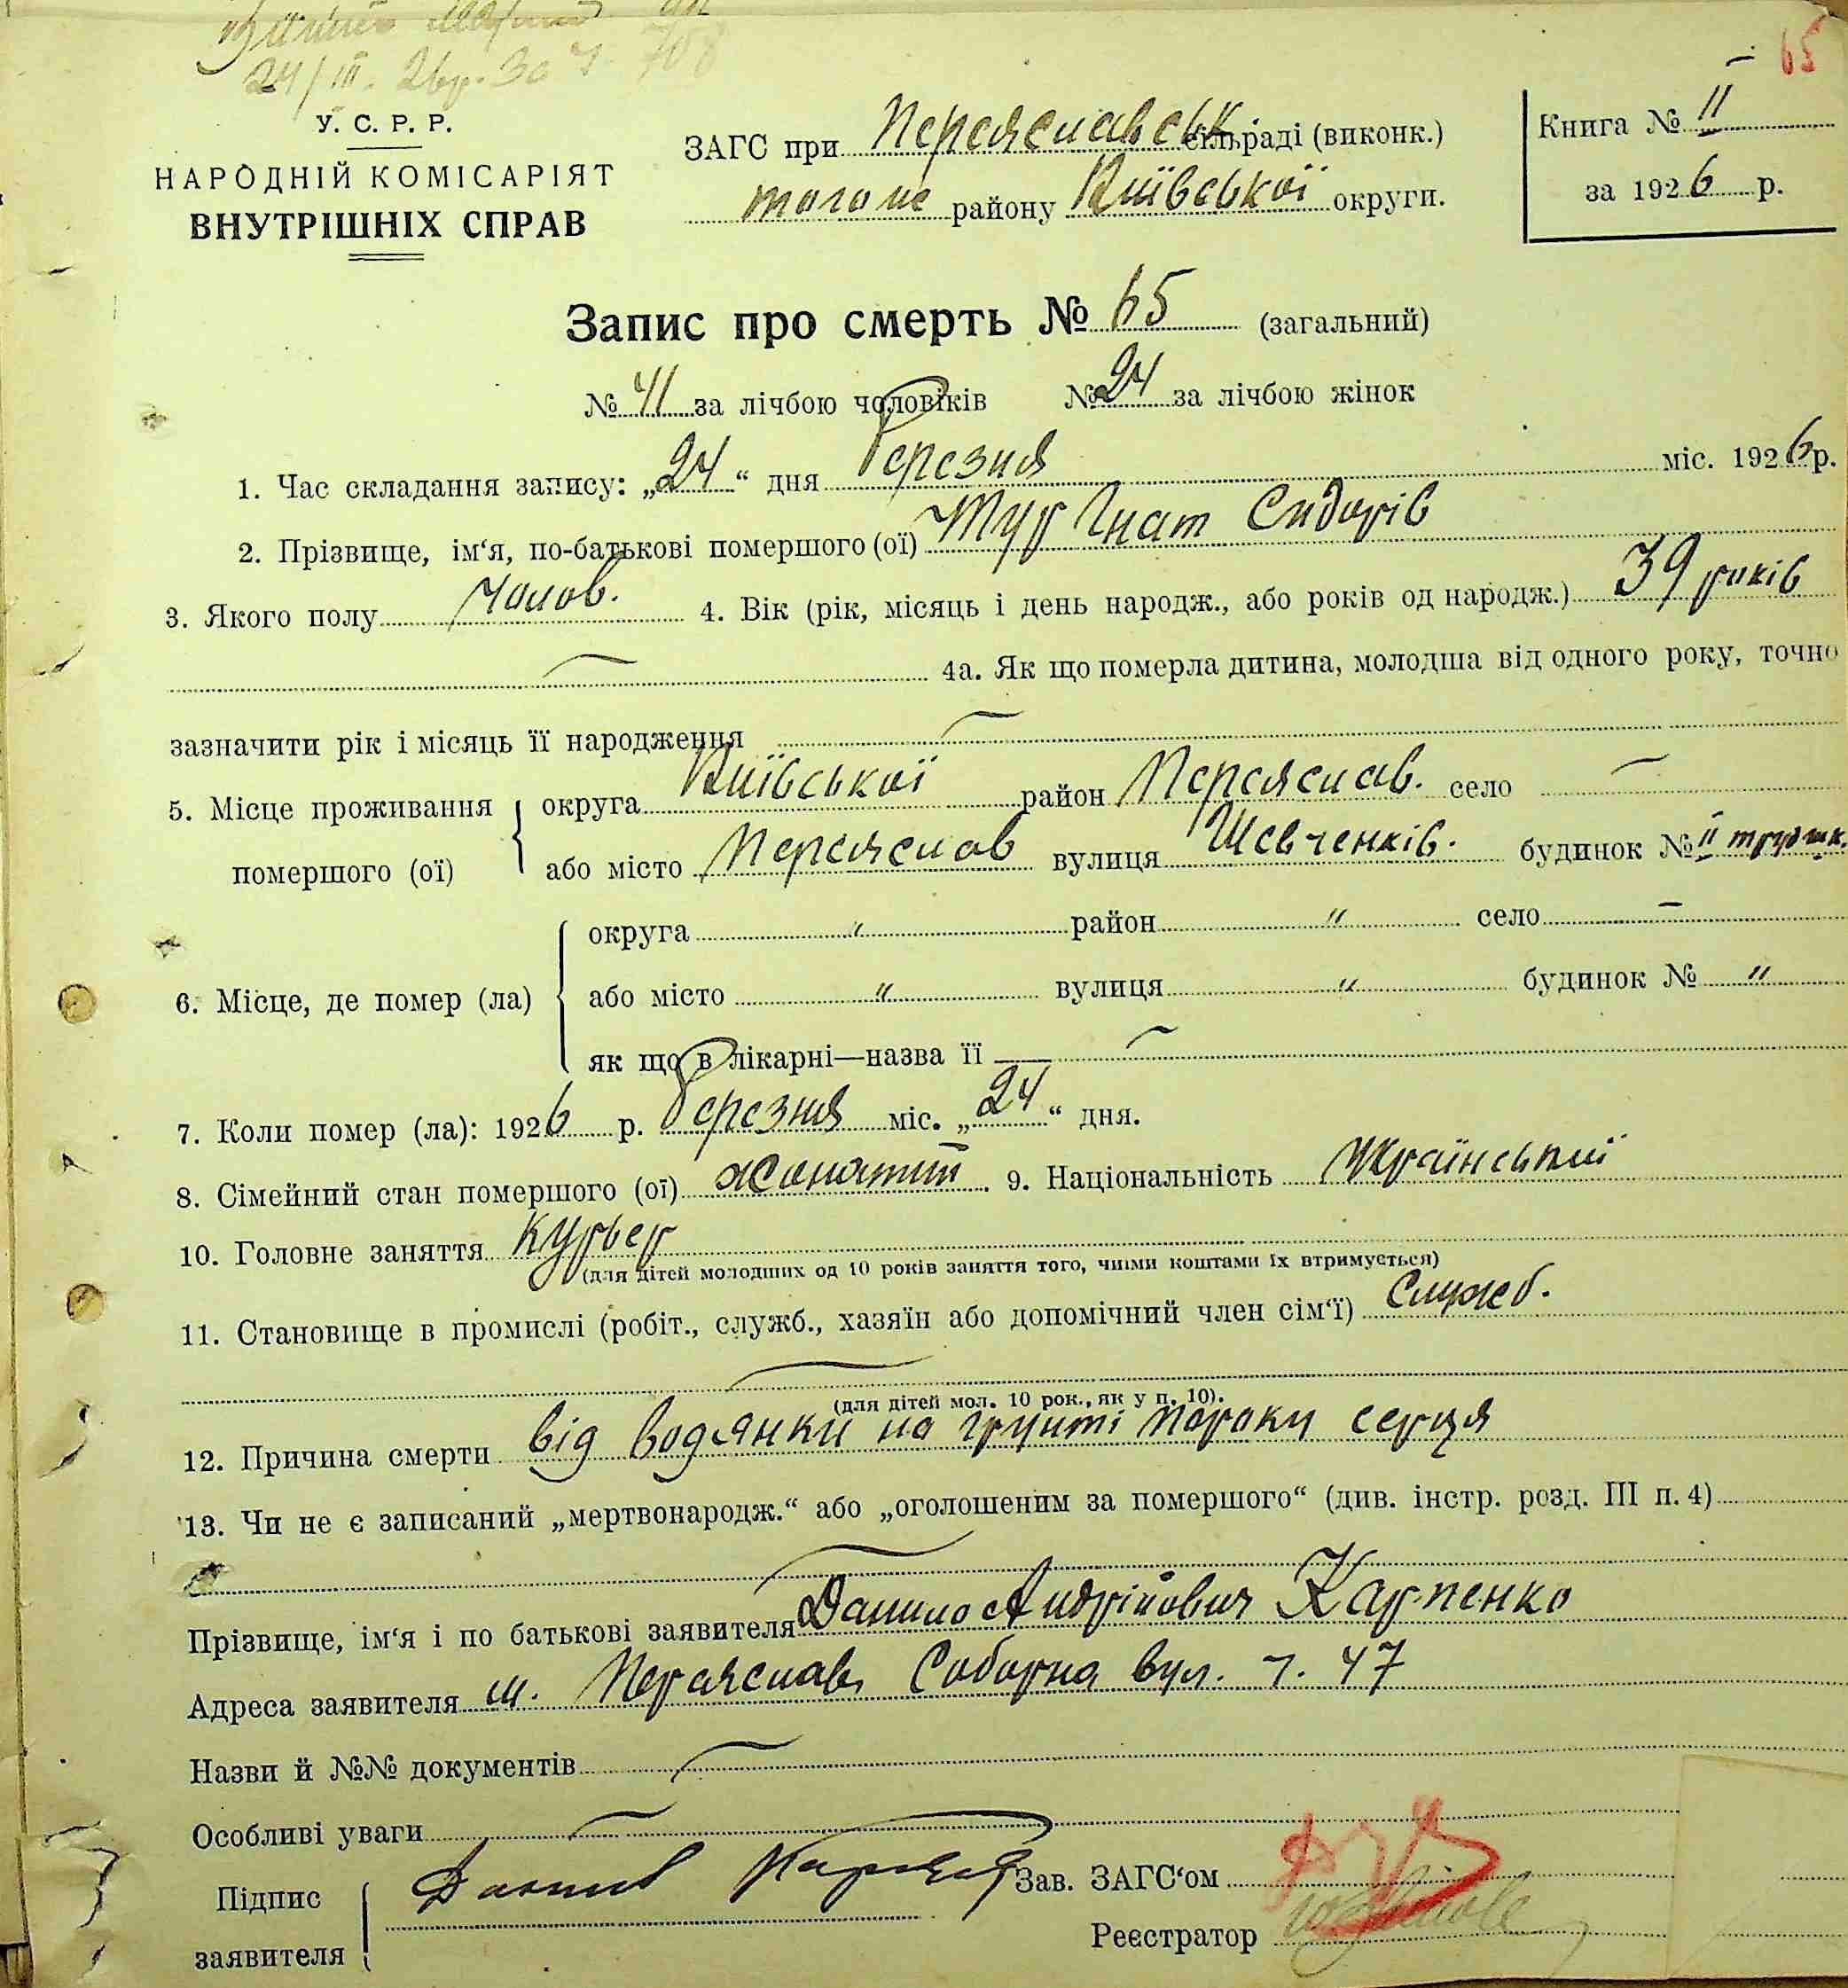 24/III. 26р.
65
У. С. Р. Р.
НАРОДНІЙ КОМІСАРІЯТ
ВНУТРІШНІХ СПРАВ
ЗАГС при Переяславськ. сільраді (виконк.)
того же району Київської округи.
Книга № II
за 1926 р.
Запис про смерть № 65 (загальний)
№ 41 за лічбою чоловіків № 24 за лічбою жінок
1. Час складання запису: „24“ дня Березня міс. 1926 р.
2. Прізвище, ім‘я, по-батькові помершого (ої) Тур Гнат Сидорів
3. Якого полу чолов. 4. Вік (рік, місяць і день народж., або років од народж.) 39 років
4а. Як що померла дитина, молодша від одного року, точно
зазначити рік і місяць її народження
5. Місце проживання помершого (ої) округа Київської район Переяслав. село —
або місто Переяслав вулиця Шевченків. будинок № II
6. Місце, де помер (ла) округа " район " село —
або місто " вулиця " будинок № "
як що в лікарні—назва її —
7. Коли помер (ла): 1926 р. Березня міс. „24“ дня.
8. Сімейний стан помершого (ої) жонатий. 9. Національність Український
10. Головне заняття Курьер
(для дітей молодших од 10 років заняття того, чиїми коштами їх втримується)
11. Становище в промислі (робіт., служб., хазяїн або допомічний член сім‘ї) Служб.
(для дітей мол. 10 рок., як у п. 10).
12. Причина смерти від водянки на грунті пороку серця
13. Чи не є записаний „мертвонародж.“ або „оголошеним за помершого“ (див. інстр. розд. III п. 4)
Прізвище, ім‘я і по батькові заявителя Данило Андрійович Карпенко
Адреса заявителя м. Переяслав, Соборна вул. ч. 47
Назви й №№ документів
Особливі уваги
Підпис заявителя Данило Карпенко
Зав. ЗАГС‘ом
Реєстратор